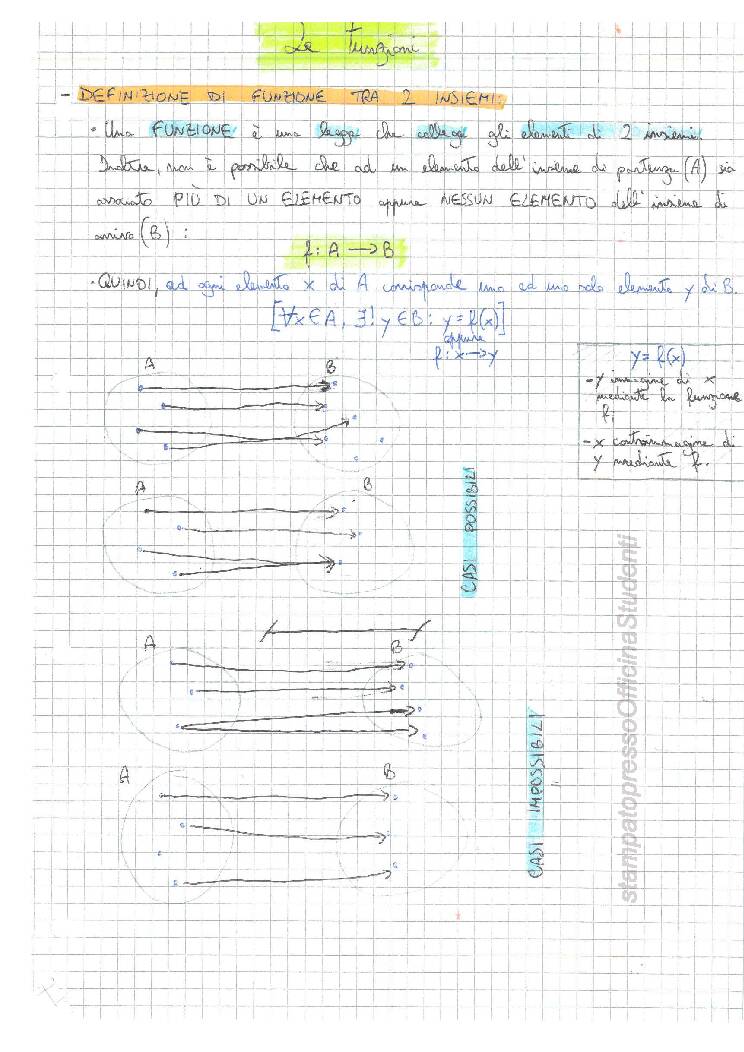 Le Funzioni
- DEFINIZIONE DI FUNZIONE TRA 2 INSIEMI:
• Una FUNZIONE è una legge che collega gli elementi di 2 insiemi.
Inoltre, non è possibile che ad un elemento dell'insieme di partenza (A) sia
associato PIÙ DI UN ELEMENTO oppure NESSUN ELEMENTO dell'insieme di
arrivo (B) :
f: A → B
• QUINDI, ad ogni elemento x di A corrisponde uno ed uno solo elemento y di B.
[∀x∈A, ∃! y∈B: y=f(x)]
oppure
f: x→y
y=f(x)
- y immagine di x
mediante la funzione
f;
- x controimmagine di
y mediante f.
A B
A B
CASI POSSIBILI
A B
A B
CASI IMPOSSIBILI
stampatopressoOfficinaStudenti